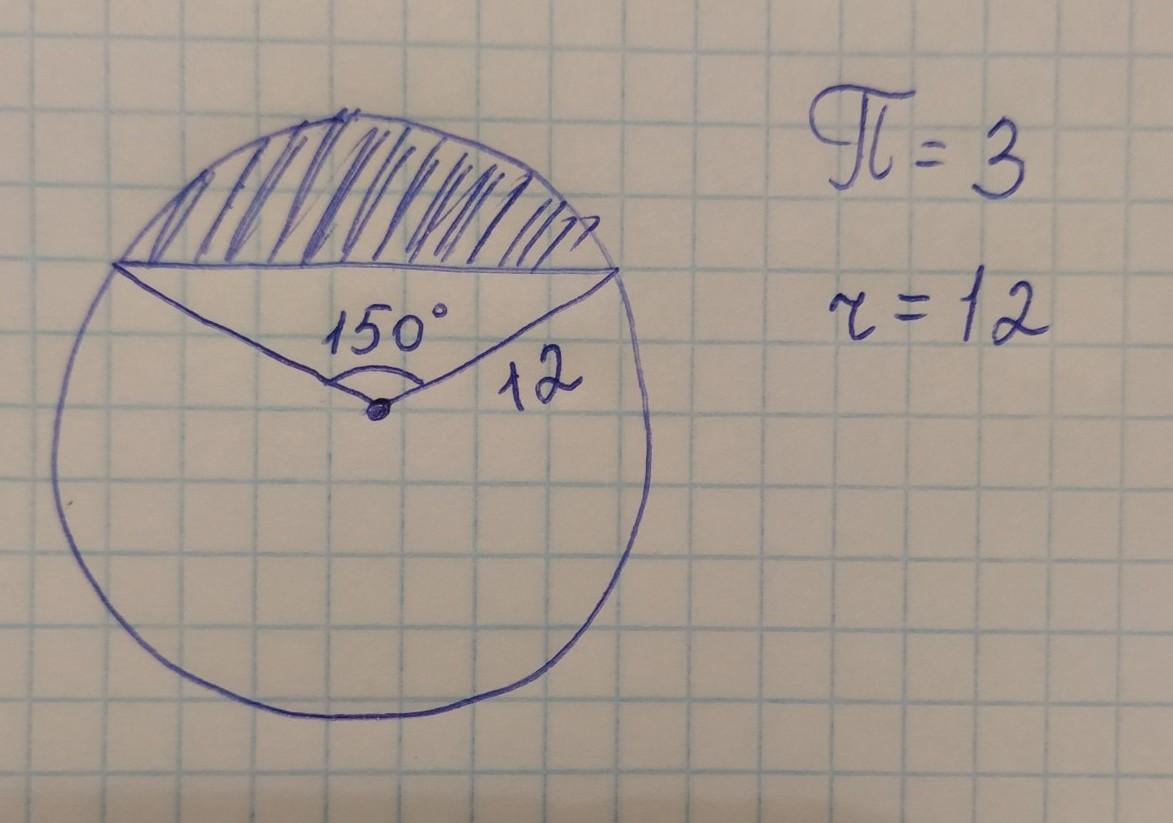 π = 3
r = 12
150°
12